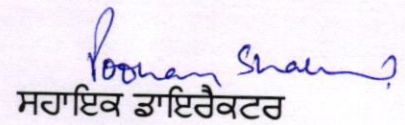 Poonam Sharma
ਸਹਾਇਕ ਡਾਇਰੈਕਟਰ